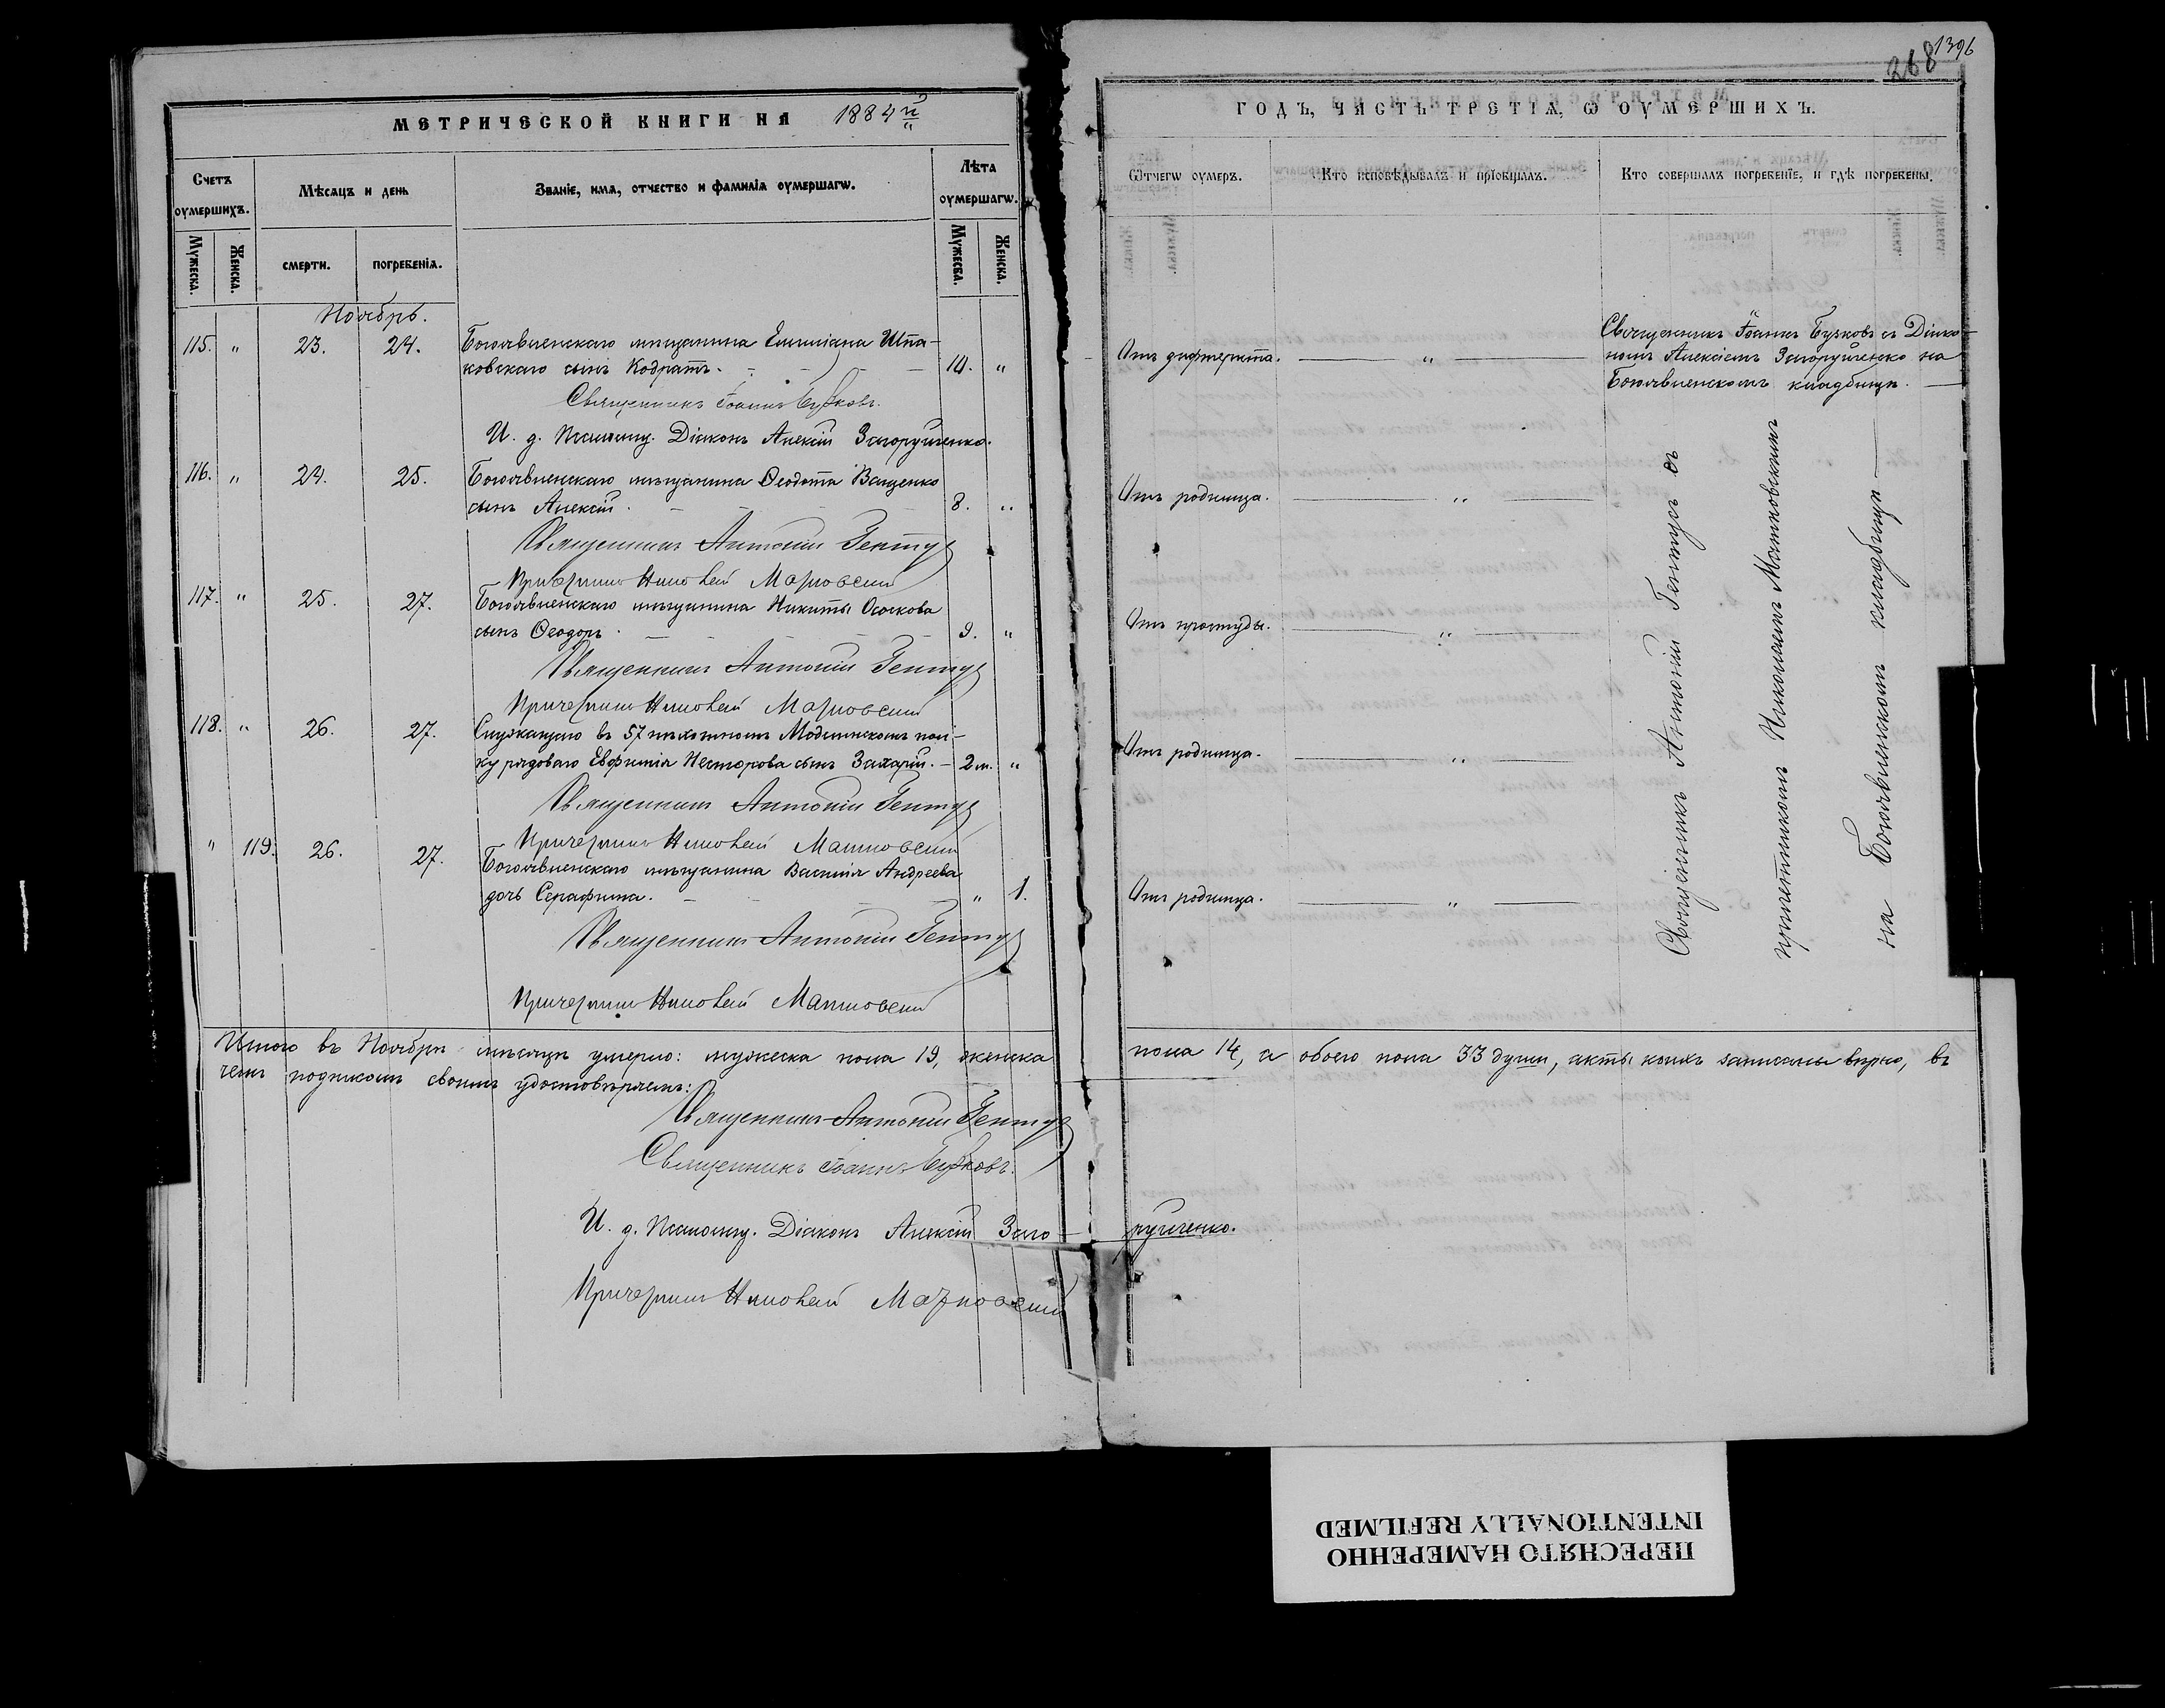 1396
268
МЕТРИЧЕСКОЙ КНИГИ НА 1884 й
ГОДЪ, ЧАСТЬ ТРЕТІѦ, Ѡ ОУМЕРШИХЪ.
Счетъ оумершихъ.
Мѣсяцъ и день
Званіе, имя, отчество и фамилія оумершагѡ.
Лѣта оумершагѡ.
Ѿчегѡ оумеръ.
Кто исповѣдывалъ и пріобщалъ.
Кто совершалъ погребеніе, и гдѣ погребены.
Мужеска.
Женска.
смерти.
погребенія.
Мужеска.
Женска.
Ноябрь.
115. " 23. 24. Богоявленскаго мѣщанина Емиліана Шпа-
ковскаго сынъ Кодратъ. 10. "
Отъ дифтерита. "
Священникъ Іоаннъ Бузковъ съ Діако-
номъ Алексіемъ Загоруйченко на
Богоявленскомъ кладбищѣ.
Священникъ Іоаннъ Бузковъ.
И. д. Псаломщ. Діаконъ Алексій Загоруйченко.
116. " 24. 25. Богоявленскаго мѣщанина Ѳеодота Ващенко
сынъ Алексій. 8. "
Отъ родимца. "
Священникъ Антоній Гентус
Причетникъ Николай Матковскій
117. " 25. 27. Богоявленскаго мѣщанина Никиты Осокова
сынъ Ѳеодоръ. 9. "
Отъ простуды. "
Священникъ Антоній Гентус
Причетникъ Николай Матковскій
118. " 26. 27. Служащаго въ 57 пѣхотномъ Модлинскомъ пол-
ку рядоваго Евфимія Несторова сынъ Захарій. 2 м. "
Отъ родимца. "
Священникъ Антоній Гентус
Причетникъ Николай Матковскій
" 119. 26. 27. Богоявленскаго мѣщанина Василія Андреева
дочь Серафима. " 1.
Отъ родимца. "
Священникъ Антоній Гентус
Причетникъ Николай Матковскій
Священникъ Антоній Гентусъ съ
причетникомъ Николаемъ Матковскимъ
на Богоявленскомъ кладбищѣ
Итого въ Ноябрѣ мѣсяцѣ умерло: мужеска пола 19, женска пола 14, а обоего пола 33 души, акты коихъ записаны вѣрно, въ
чемъ подписомъ своимъ удостовѣряемъ:
Священникъ Антоній Гентус
Священникъ Іоаннъ Бузковъ.
И. д. Псаломщ. Діаконъ Алексій Заго-
руйченко.
Причетникъ Николай Матковскій
ПЕРЕСНЯТО НАМЕРЕННО
INTENTIONALLY REFILMED